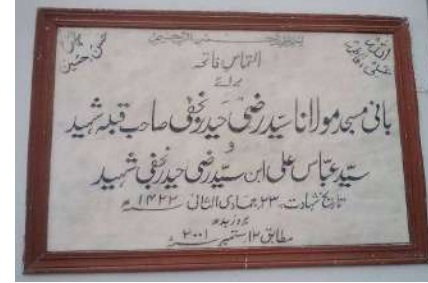 بسم اللہ الرحمن الرحیم
حسن حسین
التماس فاتحہ
برائے
بانی مسجد مولانا سیّد رضی حیدر نجفی صاحب قبلہ شہید
و
سیّد عبّاس علی ابن سیّد رضی حیدر نجفی شہید
تاریخ شہادت ۲۳ جمادی الثانی ۱۴۲۲ھ
بروز بدھ
مطابق ۱۲ ستمبر ۲۰۰۱ء